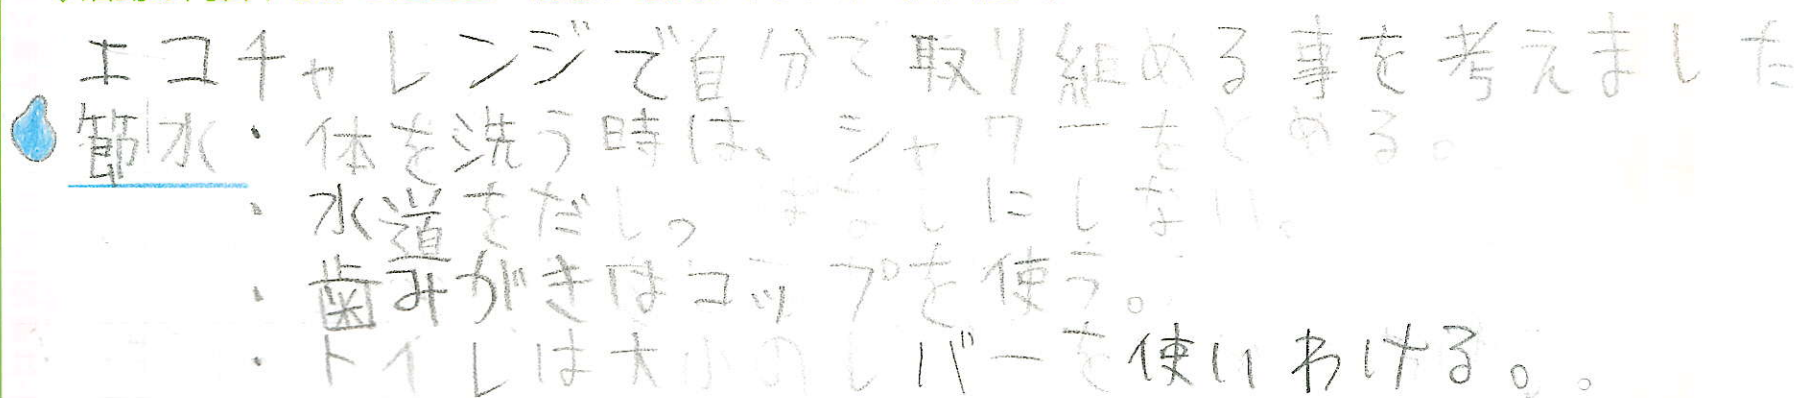 エコチャレンジで自分で取り組める事を考えました
節水・体を洗う時は、シャワーをとめる。
・水道をだしっぱなしにしない。
・歯みがきはコップを使う。
・トイレは大小のレバーを使いわける。